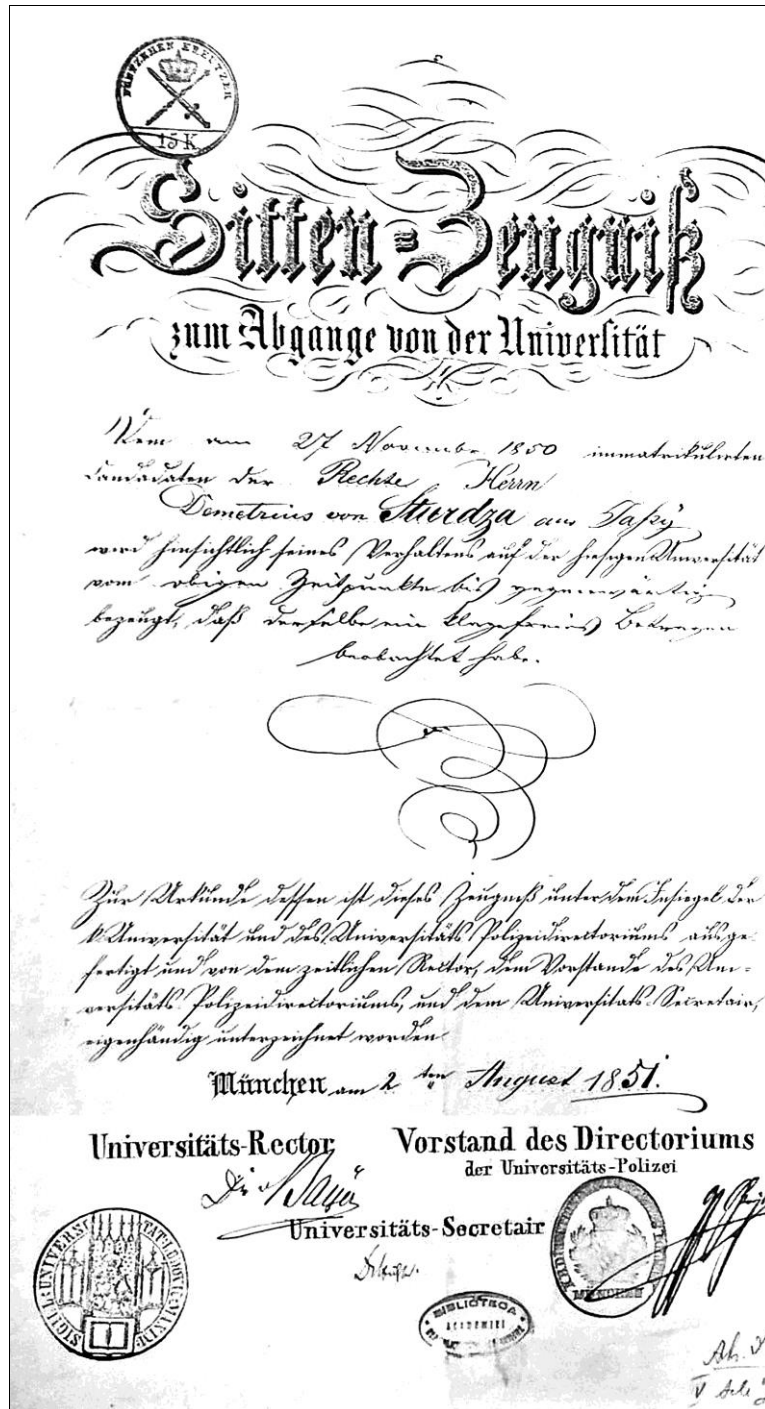 FÜNFZEHEN KREUTZER
15 K
Sitten=Zeugniß
zum Abgange von der Universität
Dem am 27 November 1850 immatrikulirten
Candidaten der Rechte Herrn
Demetrius von Sturdza aus Jaßÿ
wird hinsichtlich seines Verhaltens auf der hiesigen Universität
vom obigen Zeitpunkte bis gegenwärtig
bezeugt, daß derselbe ein klagefreies Betragen
beobachtet habe.
Zur Urkunde dessen ist dieses Zeugniß unter dem Insiegel der
k. Universität und des Universitäts Polizeidirectoriums ausge-
fertigt und von dem zeitlichen Rector, dem Vorstande des Uni-
versitäts Polizeidirectoriums, und dem Universitäts-Secretair,
eigenhändig unterzeichnet worden
München am 2ten August 1851.
Universitäts-Rector
Vorstand des Directoriums
der Universitäts-Polizei
Universitäts-Secretair
SIGILL: UNIVERS
MÜNCHEN
BIBLIOTECA
ACADEMIEI